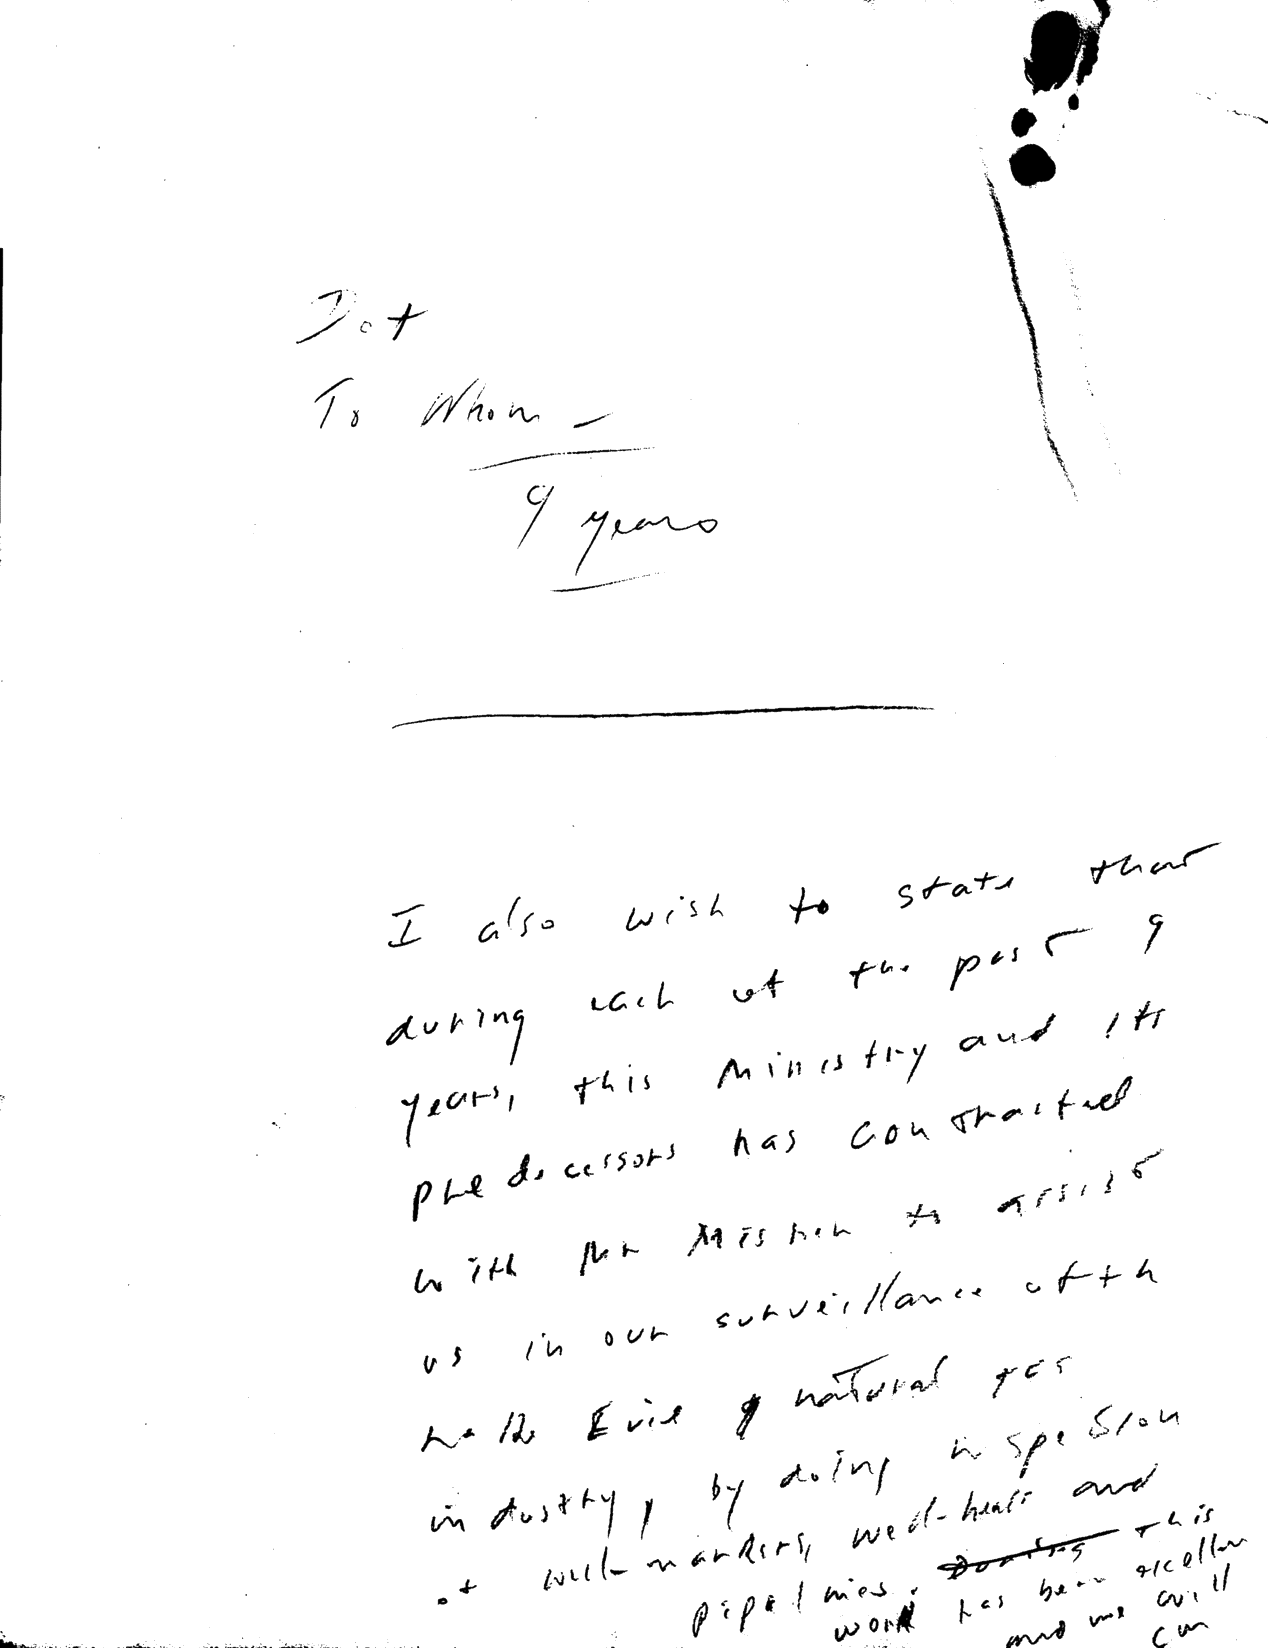 Dot
To Whom –
9 years
I also wish to state that
during each of the past 9
years, this Ministry and its
predecessors has contracted
with Mr to assist
us in our surveillance of th
Lake Erie natural gas
industry, by doing inspection
of well-markers, well-heads and
pipelines. During this
work has been excellen
and we will
con